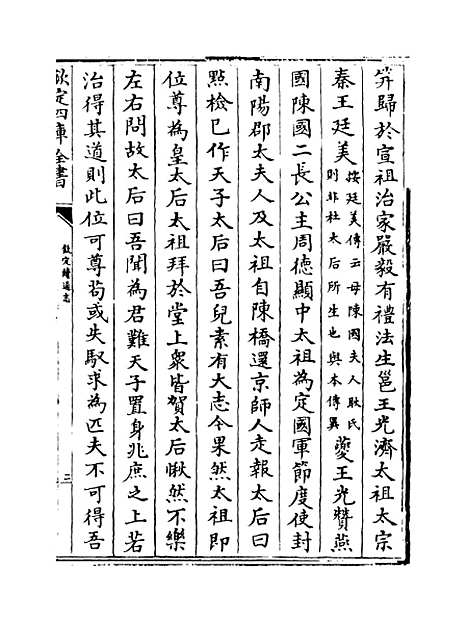 笄歸於宣祖治家嚴毅有禮法生邕王光濟太祖太宗
秦王廷美按廷美傳云母陳國夫人耿氏則非杜太后所生也與本傳異夔王光贊燕
國陳國二長公主周德顯中太祖為定國軍節度使封
南陽郡太夫人及太祖自陳橋還京師人走報太后曰
點檢已作天子太后曰吾兒素有大志今果然太祖即
位尊為皇太后太祖拜於堂上衆皆賀太后愀然不樂
左右問故太后曰吾聞為君難天子置身兆庶之上若
治得其道則此位可尊茍或失馭求為匹夫不可得吾
欽定四庫全書
欽定續通志
三